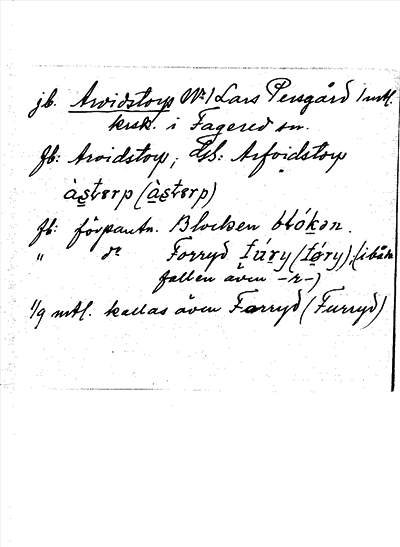 jb. Arvidstorp No 1 Lars Persgård 1 mtl.
krsk. i Fagered sn.
fb: Arvidstorp; Gfb: Arfvidstorp
às̱tərp (às̱tərp)
fb: förpantn. Blocken blókən.
" do Forryd fúry (fóry); (i båda
fallen även -r-)
1/9 mtl. kallas även Farryd (Furryd)